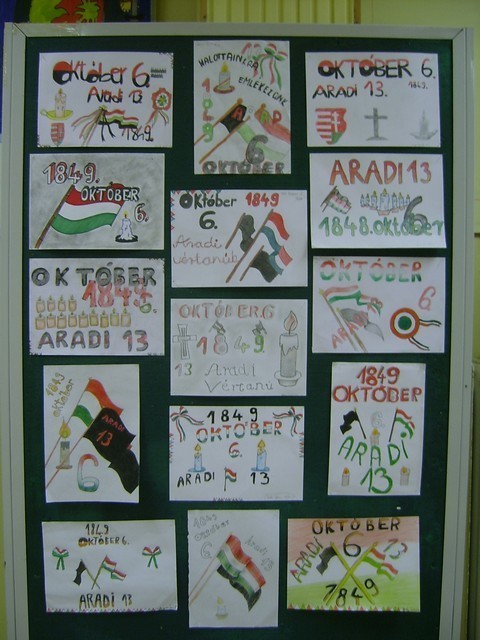 Október 6.
Aradi 13.
1849
HALOTTAINKRA
EMLÉKEZÜNK
1849
6
OKTÓBER
OKTÓBER 6.
ARADI 13. 1849.
1849.
OKTÓBER
6.
Október 1849
6.
Aradi
vértanúk
ARADI 13
6
1848. október
OKTÓBER
1849.
ARADI 13
OKTÓBER 6
1849.
13 Aradi
Vértanú
OKTÓBER
6.
ARADI
1849
október
ARADI
13
6
1849
OKTÓBER
6.
ARADI 13
1849
OKTÓBER
6
ARADI
13
1849
OKTÓBER 6.
ARADI 13
1849
október
6
Aradi 13
OKTÓBER
6
ARADI 13
1849